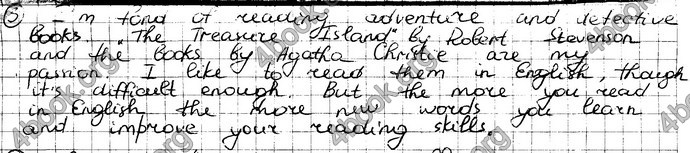 5) I'm fond of reading adventure and detective
books. "The Treasure Island" by Robert Stevenson
and the books by Agatha Christie are my
passion. I like to read them in English, though
it's difficult enough. But the more you read
in English the more new words you learn
and improve your reading skills.